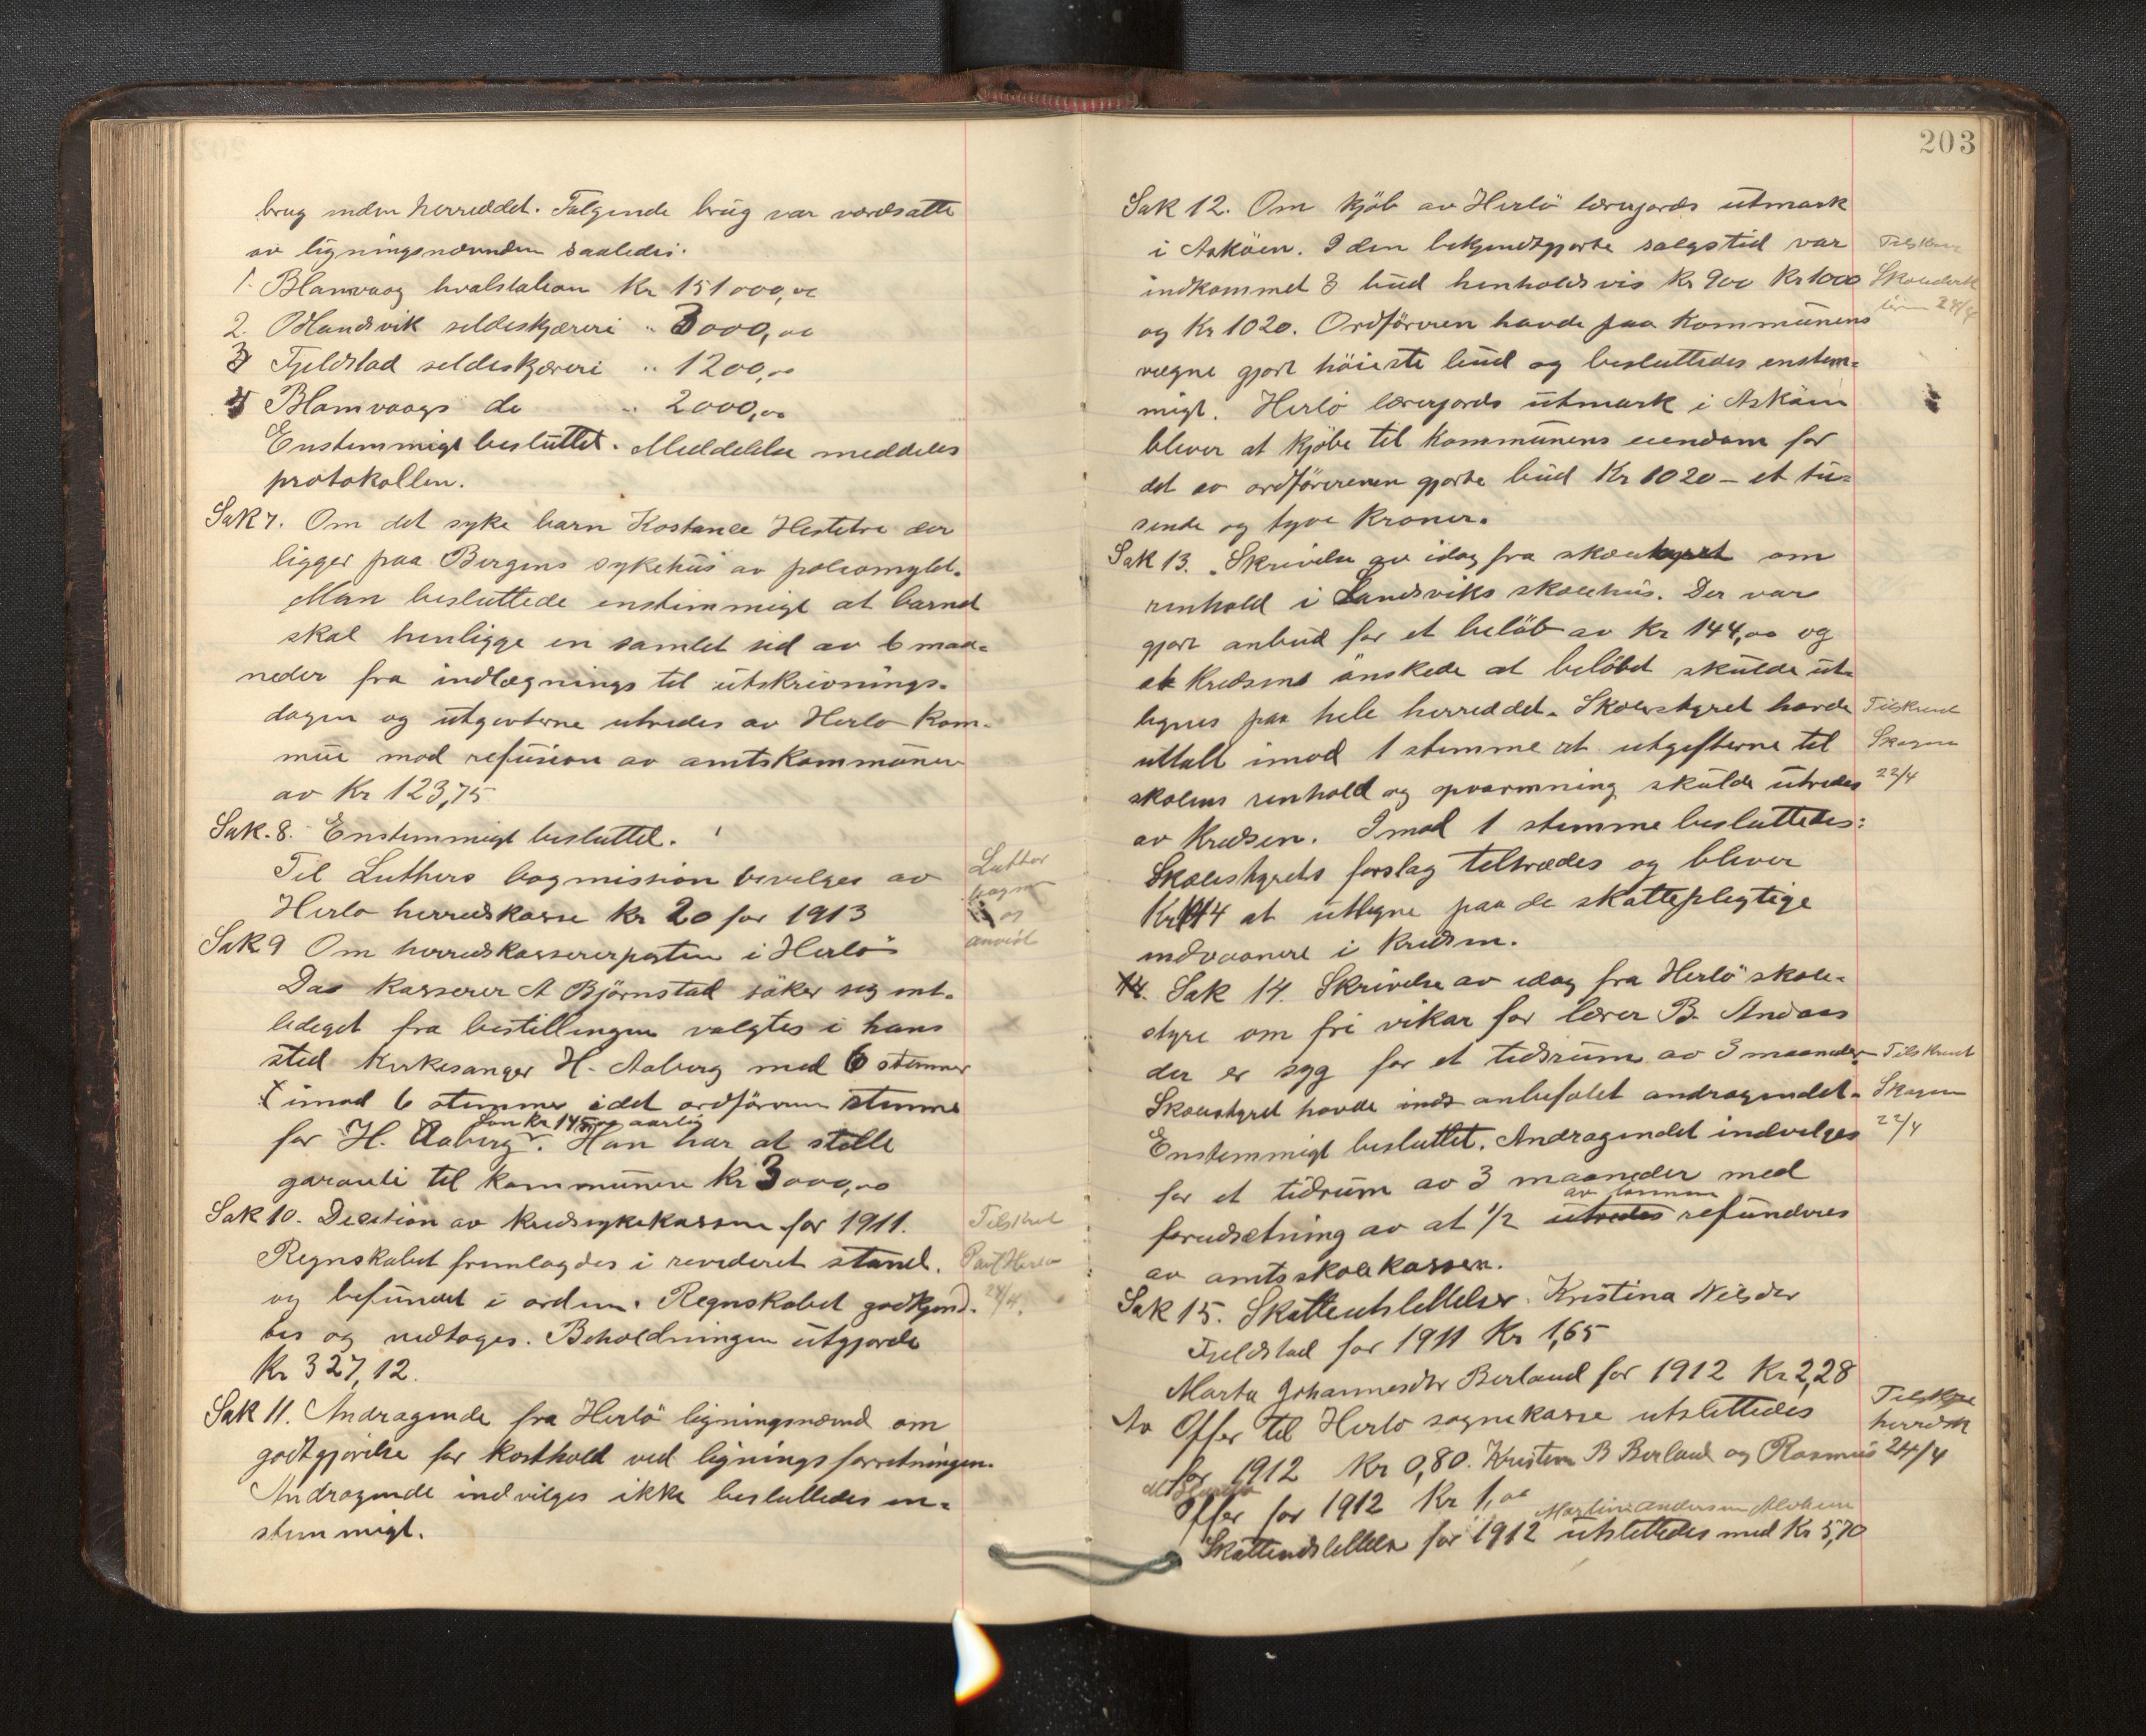 brug inden herreddet. Følgende brug var værdsatte
av ligningsnævnden saaledes:
1. Blomvaag hvalstation Kr 151000,00
2. Handsvik sildeskjæreri " 3000,00
3 Fjeldstad sildeskjæreri " 1200,00
4 Blomvaags do " 2000,00
Enstemmigt besluttet. Meddelelse meddeles
protokollen.
Sak 7. Om det syke barn Kostance Hestetræ der
ligger paa Bergens sykehus av poleomylit.
Man besluttede enstemmigt at barnet
skal henligge en samlet tid av 6 maa-
neder fra indlægnings til utskrivnings-
dagen og utgifterne utredes av Herlo Kom-
mune mod refusion av amtskommunen
av Kr 123,75
Sak 8. Enstemmigt besluttet.
Til Luthers bogmission bevilges av
Herlo herredskasse kr 20 for 1913
Luther
bogm
og
anvist
Sak 9 Om herredskassererposten i Herlö
Da kasserer A Björnstad söker sig ent-
lediget fra bestillingen valgtes i hans
sted kirkesanger H. Aaberg med 6 stemmer
imod 6 stemmer idet ordföreren stemmer
Løn Kr 1450,00 aarlig
for H. Aaberg. Han har at stille
garanti til kommunen kr 3000,00
Sak 10. Decition av Kredssykekassen for 1911.
Regnskabet fremlagdes i revideret stand.
og befundet i orden. Regnskabet godkjend-
tes og vedtoges. Beholdningen utgjorde
Kr 327,12.
Tilskrevet
Herlo
24/4.
Sak 11. Andragende fra Herlö ligningsnævnd om
godtgjörelse for kosthold ved ligningsforretningen.
Andragende indvilges ikke besluttedes en-
stemmigt.
203
Sak 12. Om kjöb av Herlö lærerjords utmark
i Asköen. I den bekjendtgjorte salgstid var
indkommet 3 bud henholdsvis Kr 900 Kr 1000
og Kr 1020. Ordföreren havde paa Kommunens
vegne gjort höieste bud og besluttedes enstem-
migt. Herlö lærerjords utmark i Asköen
bliver at kjöbe til Kommunens eiendom for
det av ordföreren gjorte bud Kr 1020 – et tu-
sende og tyve Kroner.
Tilskrevet
24/4
Sak 13. Skrivelse av idag fra skolestyret om
renhold i Landsviks skolehus. Der var
gjort anbud for et belöb av Kr 144,00 og
at Kredsens önskede at belöbet skulde ut-
lignes paa hele herreddet. Skolestyret havde
uttalt imod 1 stemme at utgifterne til
skolens renhold og opvarmning skulde utredes
av Kredsen. Imod 1 stemme besluttedes:
Skolestyrets forslag tiltrædes og bliver
Kr 144 at utligne paa de skattepligtige
indvaanere i Kredsen.
Tilskrevet
Skogen
22/4
Sak 14. Skrivelse av idag fra Herlö skole-
styre om fri vikar for lærer B. Andaas
der er syg for et tidsrum av 3 maaneder
Skolestyret havde anbefalet andragendet.
Enstemmigt besluttet. Andragendet indvilges
for et tidrum av 3 maaneder med
av lønnen
forudsætning av at 1/2 utredes refunderes
av amtsskolekassen.
Tilskrevet
Skogen
22/4
Sak 15. Skatteutslettelser. Kristina Nilsdtr
Fjeldstad for 1911 Kr 1,65
Marta Johannesdtr Berland for 1912 Kr 2,28
Av Offer til Herlo sognekasse utslettedes
for 1912 Kr 0,80. Kristen B Berland og Rasmus
Offer for 1912 Kr 1,00
Martin Andersen
Skatteudslettelse for 1912 utslettedes med Kr 5,70
24/4